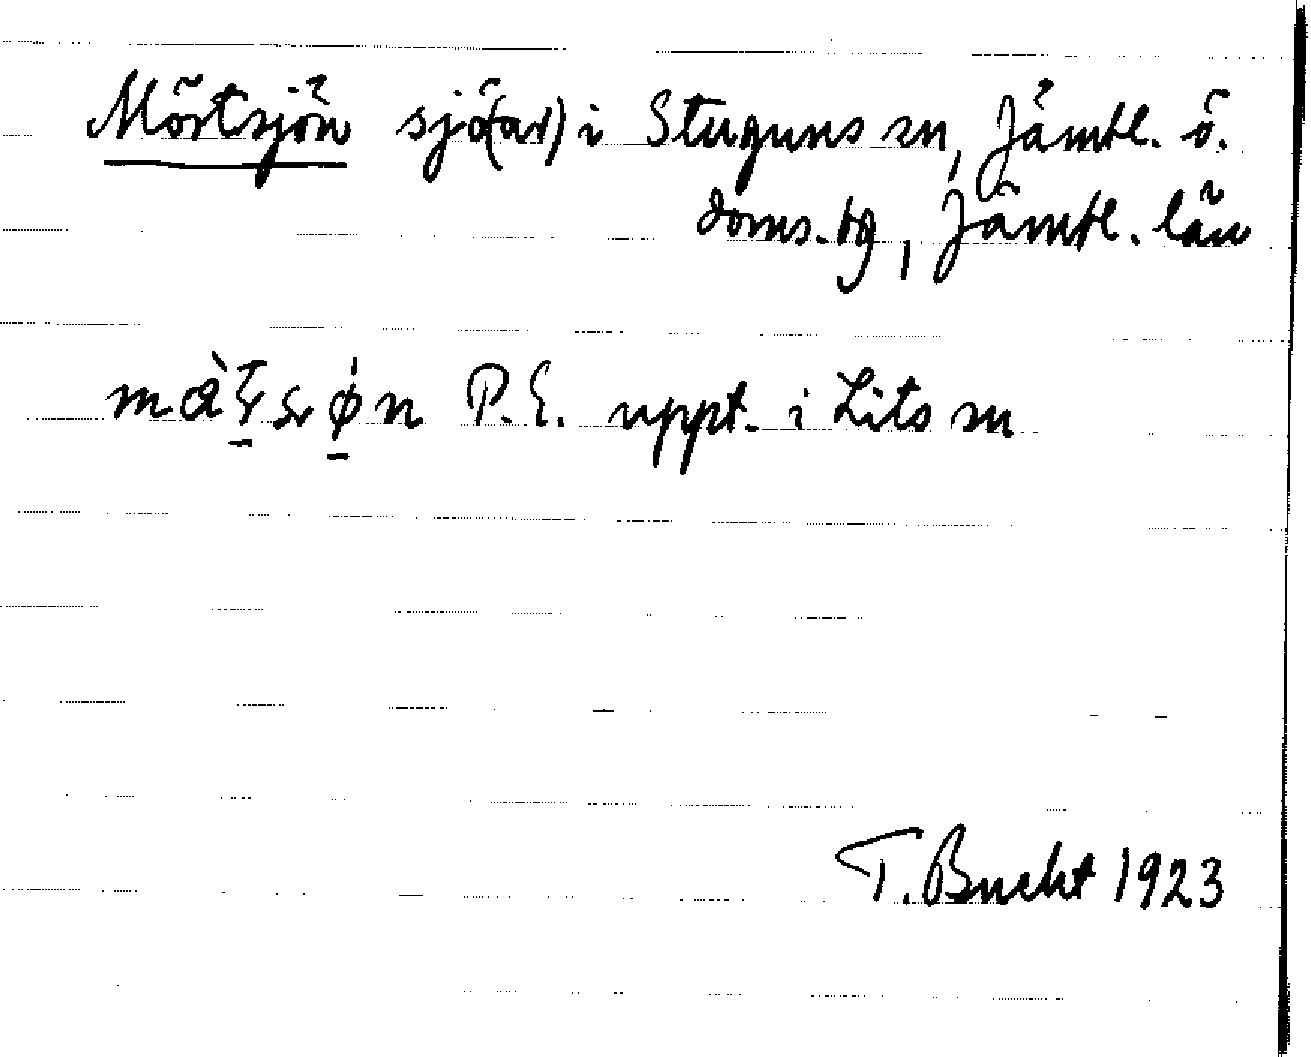 Mörtsjön sjö(ar) i Stuguns sn, Jämtl. ö.
doms.-tg, Jämtl. län
P.E. uppt. i Lits sn
T. Bucht 1923